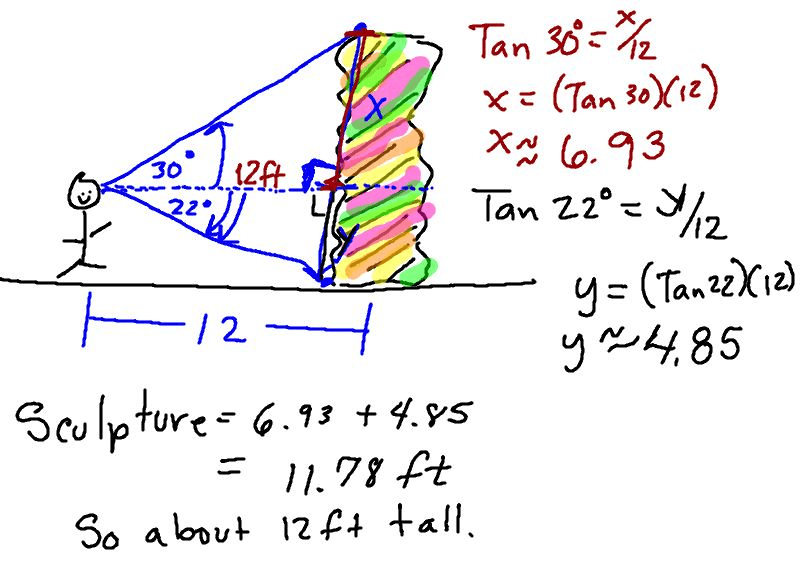 Tan 30° = x/12
x = (Tan 30)(12)
x ≈ 6.93
Tan 22° = y/12
y = (Tan 22)(12)
y ≈ 4.85
x
30°
12ft
22°
L
y
12
Sculpture = 6.93 + 4.85
= 11.78 ft
So about 12ft tall.